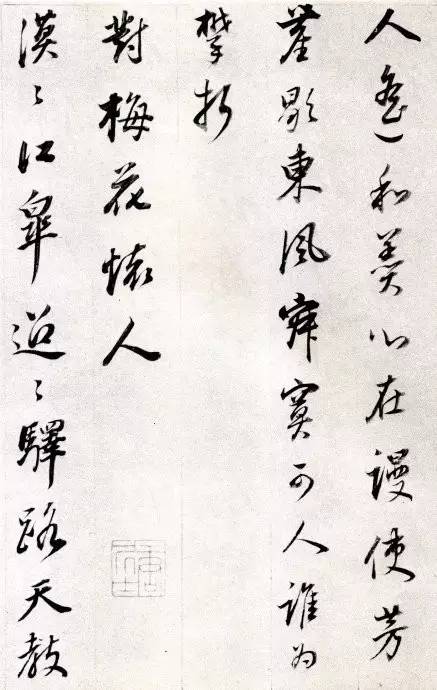 人遙和羹心在謾使芳
塵歇東風寂寞可人誰為
攀折
對梅花懷人
漠〻江皋迢〻驛路天教